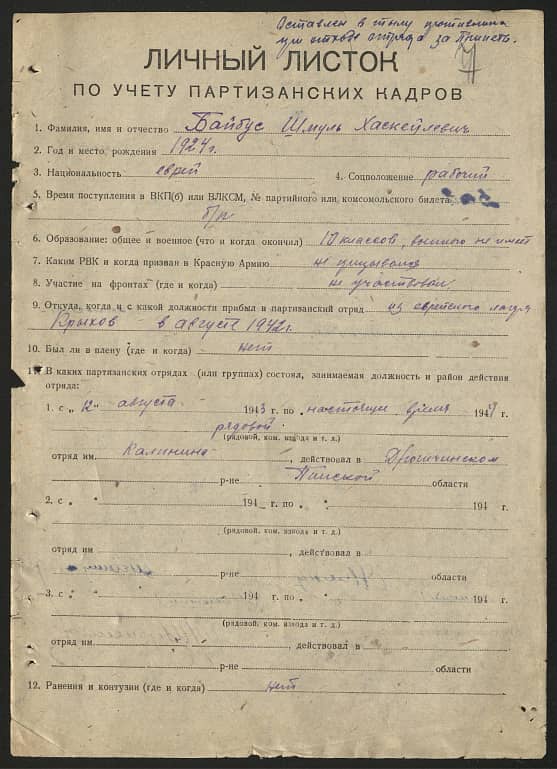 Оставлен в тылу противника
при отходе отряда за Припять.
ЛИЧНЫЙ ЛИСТОК
ПО УЧЕТУ ПАРТИЗАНСКИХ КАДРОВ
1. Фамилия, имя и отчество Байбус Шмуль Хаскелевич
2. Год и место, рождения 1924г.
3. Национальность еврей 4. Соцположение рабочий
5. Время поступления в ВКП(б) или ВЛКСМ, № партийного или комсомольского билета
б/п
6. Образование: общее и военное (что и когда окончил) 10 классов, военного не имеет
7. Каким РВК и когда призван в Красную Армию не призывался
8. Участие на фронтах (где и когда) не участвовал.
9. Откуда, когда и с какой должности прибыл и партизанский отряд из еврейского лагеря
в августе 1942г.
10. Был ли в плену (где и когда) нет
11. В каких партизанских отрядах (или группах) состоял, занимаемая должность и район действия
отряда:
1. с „12" августа 1943 г. по настоящее время 1944 г.
рядовой
(рядовой, ком. взвода и т. д.)
отряд им Калинина, действовал в Дрогичинском
р-не Пинской области
2. с " " 194 г. по " " 194 г.
(рядовой, ком. взвода и т. д.)
отряд им , действовал в
р-не области
3. с " " 194 г. по " " 194 г.
(рядовой, ком. взвода и т. д.)
отряд им , действовал в
р-не области
12. Ранения и контузии (где и когда) нет